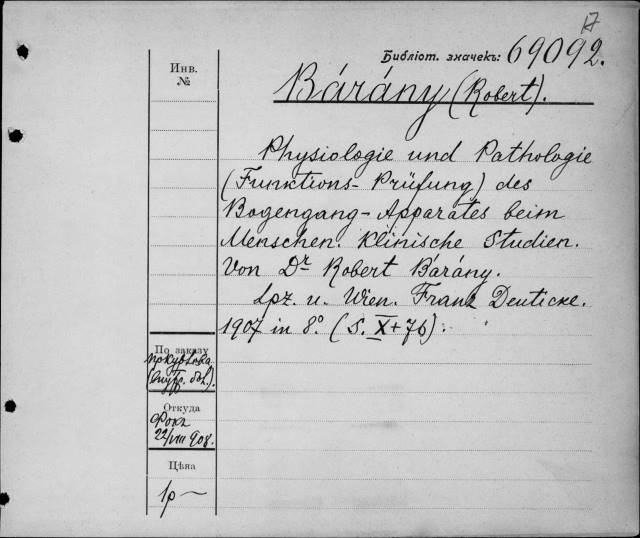 17
Библіот. значекъ: 69092.
Инв.
№
Bárány (Robert).
Physiologie und Pathologie
(Funktions-Prüfung) des
Bogengang-Apparates beim
Menschen. Klinische Studien.
Von Dr Robert Bárány.
Lpz. u. Wien. Franz Deuticke.
1907 in 8º. (S. X+76).
По заказу
Откуда
Фокъ
22/VIII 908.
Цѣна
1р —